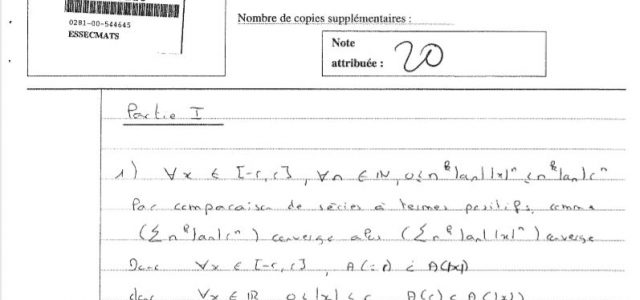 0281-00-544645
ESSECMATS
Nombre de copies supplémentaires :
Note
attribuée : 20
Partie I
1) ∀x ∈ [-r, r], ∀n ∈ ℕ, 0 ≤ n^k |an| |x|^n ≤ n^k |an| r^n
Par comparaison de séries à termes positifs, comme
(Σ n^k |an| r^n) converge alors (Σ n^k |an| |x|^n) converge
Donc ∀x ∈ [-r, r],
donc ∀x ∈ ℝ